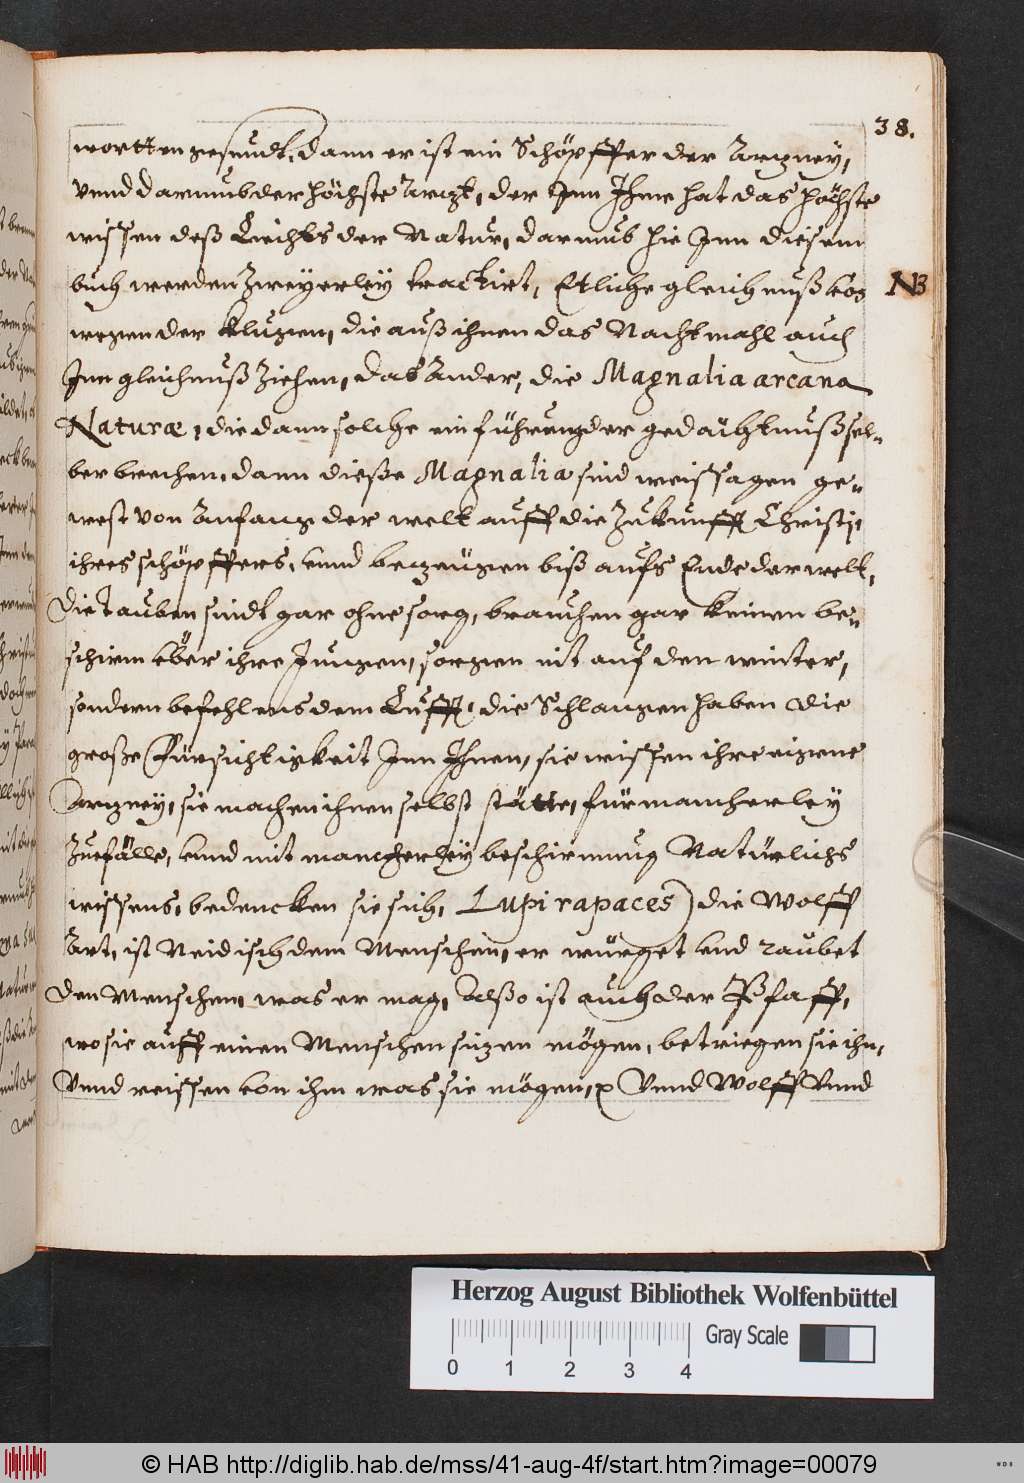 38.
wortten gesundt, dann er ist ein Schöpffer der Artzney,
vnnd darumb der höchste Artzt, der Inn Ihme hat das höchste
wissen deß Liechts der Natur, darumb hie Inn diesem
buch werden Zweyerley tractirt, Etliche gleichnuß von
NB
wegen der klugen, die auß ihnen das Nachtmahl auch
Inn gleichnuß Ziehen, das Ander, die Magnalia arcana
Naturæ, die dann solche einführung der gedächtnuß sel„
ber brechen, dann dieße Magnalia sind weissagen ge„
west von Anfang der welt auff die Zukunfft Christi,
ihres schöpffers, vnnd bezeugen biß aufs Ende der welt,
die Tauben sindt gar ohne sorg, brauchen gar keinen be„
schirm vber ihre Jungen, sorgen nit auf den winter,
sondern befehlens dem Lufft, die Schlangen haben die
große Fürsichtigkeit Inn Ihnen, sie wissen ihre eigene
Artzney, sie machen ihnen selbst stätte, für mancherley
Zuefälle, vnnd mit mancherley beschirmung Natürlichs
wissens, bedencken sie sich, Lupi rapaces) die Wolff
Art, ist Neidisch dem Menschen, er würget vnd raubet
den Menschen, was er mag, Alßo ist auch der Pfaff,
wo sie auff einen Menschen sügen mögen, betriegen sie ihn,
Vnnd reissen von ihm was sie mögen, Vnnd Wolff Vnnd
Herzog August Bibliothek Wolfenbüttel
0 1 2 3 4
Gray Scale
© HAB http://diglib.hab.de/mss/41-aug-4f/start.htm?image=00079